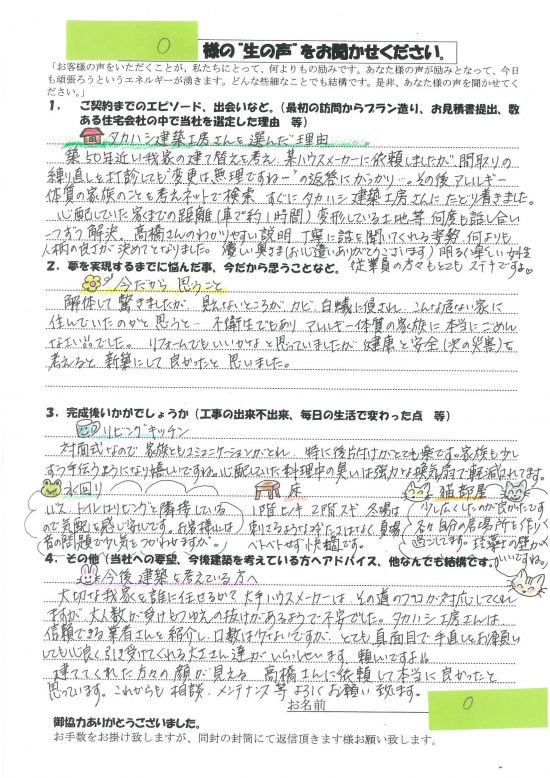 様の"生の声"をお聞かせください。
「お客様の声をいただくことが、私たちにとって、何よりもの励みです。あなた様の声が励みとなって、今日
も頑張ろうというエネルギーが湧きます。どんな些細なことでも結構です。是非、あなた様の声を聞かせてく
ださい。」
1． ご契約までのエピソード、出会いなど。（最初の訪問からプラン造り、お見積書提出、数
ある住宅会社の中で当社を選定した理由 等）
タカハシ建築工房さんを選んだ理由
築50年近い我家の建て替えを考え、某ハウスメーカーに依頼しましたが、間取りの
練り直しを打診しても"変更は無理ですねー"の返答にがっかり…。その後アレルギー
体質の家族のことも考えネットで検索 すぐにタカハシ建築工房さんにたどり着きました。
心配していた家までの距離(車で約1時間) 変形している土地等 何度も話し合い
つずつ解決。高橋さんのわかりやすい説明 丁寧に話を聞いてくれる姿勢 何よりも
人柄の良さが決めてとなりました。優しい奥さま(お心遣いありがとうございます) 明るく楽しい女性
従業員の方々もとても ステキですよ。
2． 夢を実現するまでに悩んだ事、今だから思うことなど。
今だから 思うこと
解体して驚きましたが 見えないところが カビ、白蟻に侵され こんな危ない家に
住んでいたのかと思うと… 不衛生でもあり アレルギー体質の家族に本当にごめん
なさいでした。 リフォームでもいいかなと思っていましたが 健康と安全(次の災害)を
考えると 新築にして良かったと 思いました。
3．完成後いかがでしょうか（工事の出来不出来、毎日の生活で変わった点 等）
リビングキッチン
対面式なので 家族ともコミュニケーションがとれ 特に後片付けがとても楽です。家族も少し
ずつ手伝うようになり嬉しいですね。心配していた料理中の臭いは強力な換気扇で軽減されてます。
水回り
トイレはリビングと隣接している
ので気配を感じ安心です。お客様には
音の問題で少し気をつかわせますが。
床
1階ヒノキ 2階スギ 冬場は
刺さるような冷たさはなく 夏場
ベトベトせず快適です。
猫部屋
少し広くしたのが良かったです
各々自分の居場所を作り
過ごしてます。珪藻土の壁が
いいですね。
4．その他（当社への要望、今後建築を考えている方へアドバイス、他なんでも結構です。）
今後 建築を考えている方へ
大切な我家を誰に任せるか? 大手ハウスメーカーは その道のプロが対応してくれ
ますが 大人数が受けもつゆえの抜けがあるようで不安でした。タカハシ工房さんは
信頼できる業者さんを紹介し 口数は少ないですが とても真面目で手直しをお願い
しても心良く引き受けてくれる大工さん達がいらっしゃいます。頼もしいですよ!!
建ててくれた方々の顔が見える 高橋さんに依頼して本当に良かったと
思っています。これからも 相談、メンテナンス等よろしくお願い致します。
お名前
御協力ありがとうございました。
お手数をお掛け致しますが、同封の封筒にて返信頂きます様お願い致します。